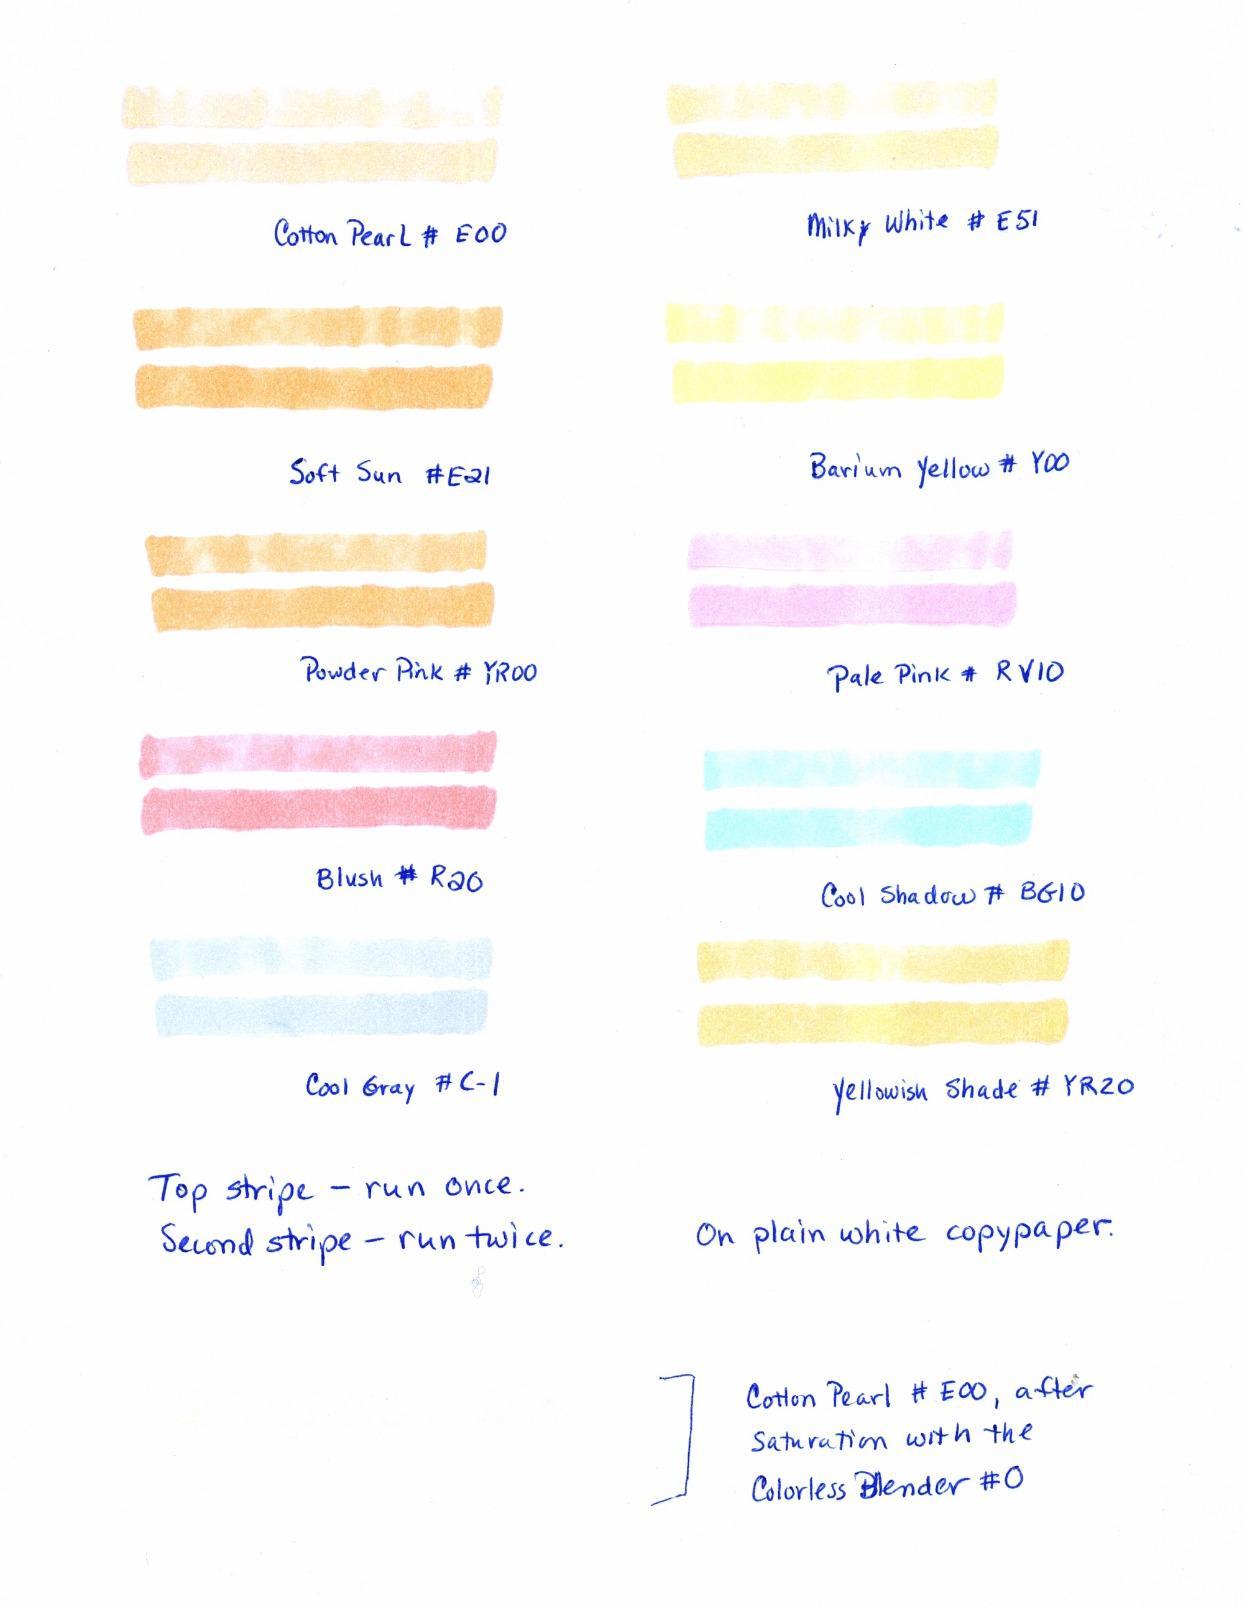 Cotton Pearl # E00
Milky White # E51
Soft Sun #E21
Barium Yellow # Y00
Powder Pink # YR00
Pale Pink # RV10
Blush # R20
Cool Shadow # BG10
Cool Gray #C-1
Yellowish Shade # YR20
Top stripe – run once.
Second stripe – run twice.
On plain white copypaper.
Cotton Pearl # E00, after
Saturation with the
Colorless Blender #0